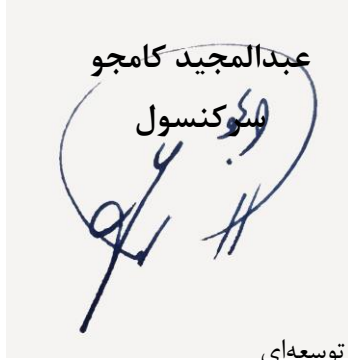 عبدالمجید کامجو
سرکنسول
توسعه‌ای